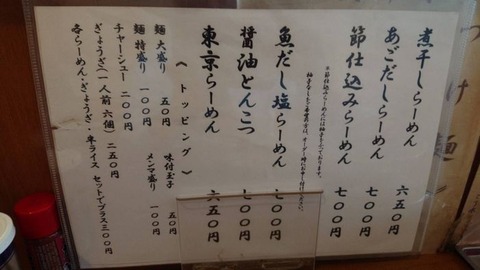 煮干しらーめん 六五〇円
あごだしらーめん 七〇〇円
節仕込みらーめん 七〇〇円
魚だし塩らーめん 七〇〇円
醤油とんこつ 七〇〇円
東京らーめん 六五〇円
《トッピング》
麺大盛り 五〇円
味付玉子 五〇円
麺特盛り 一〇〇円
メンマ盛り 一〇〇円
チャーシュー 二〇〇円
ぎょうざ(一人前 六個) 二五〇円
各らーめん・ぎょうざ・半ライス セットでプラス三〇〇円
つけ麺